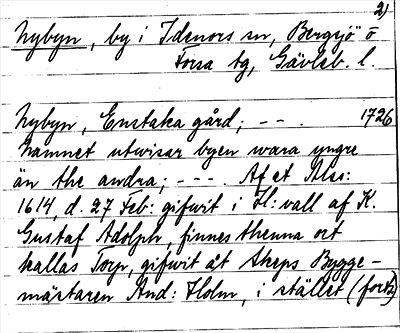 2)
Nybyn, by i Idenors sn, Bergsjö o
Forsa tg, Gävleb. l.
Nybyn, Enstaka gård; - - . 1726
Namnet utwisar byen wara yngre
än the andra; - - - . Af et Alsi:
1614, d. 27 Feb: gifwit i H:vall af K.
Gustaf Adolph, finnes thenna ort
kallas Torp, gifwit åt Skeps Bygge-
mästaren And: Holm, i stället (forts)